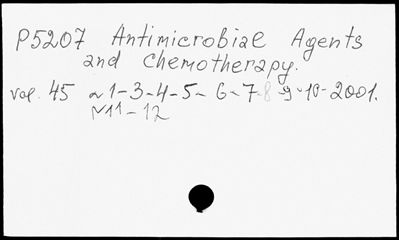 P5207 Antimicrobial Agents
and Chemotherapy.
vol. 45 N 1-3-4-5-6-7-8-9-10-2001.
N11-12